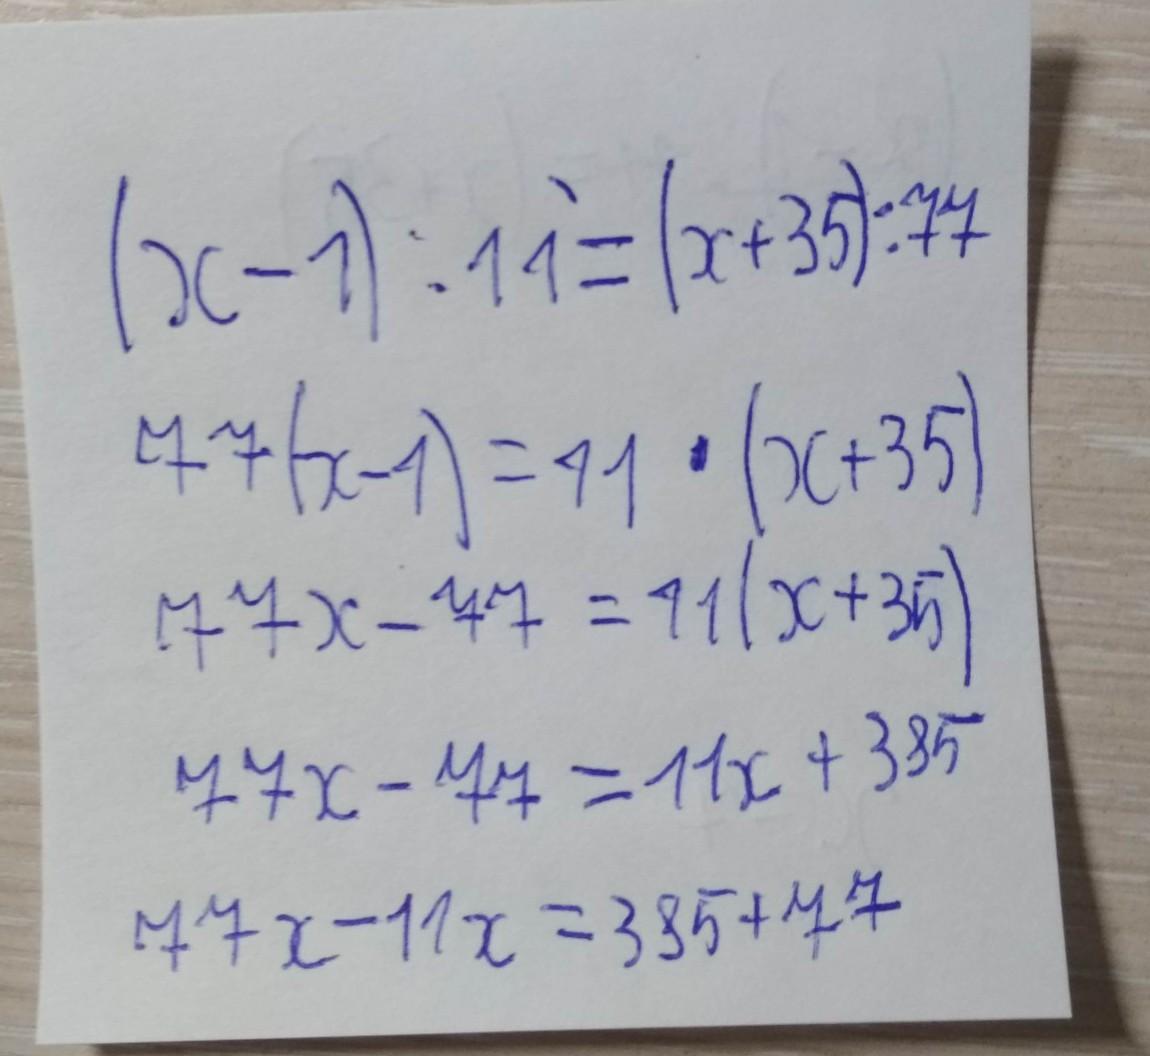 (x-1):11=(x+35):77
77(x-1)=11·(x+35)
77x-77=11(x+35)
77x-77=11x+385
77x-11x=385+77